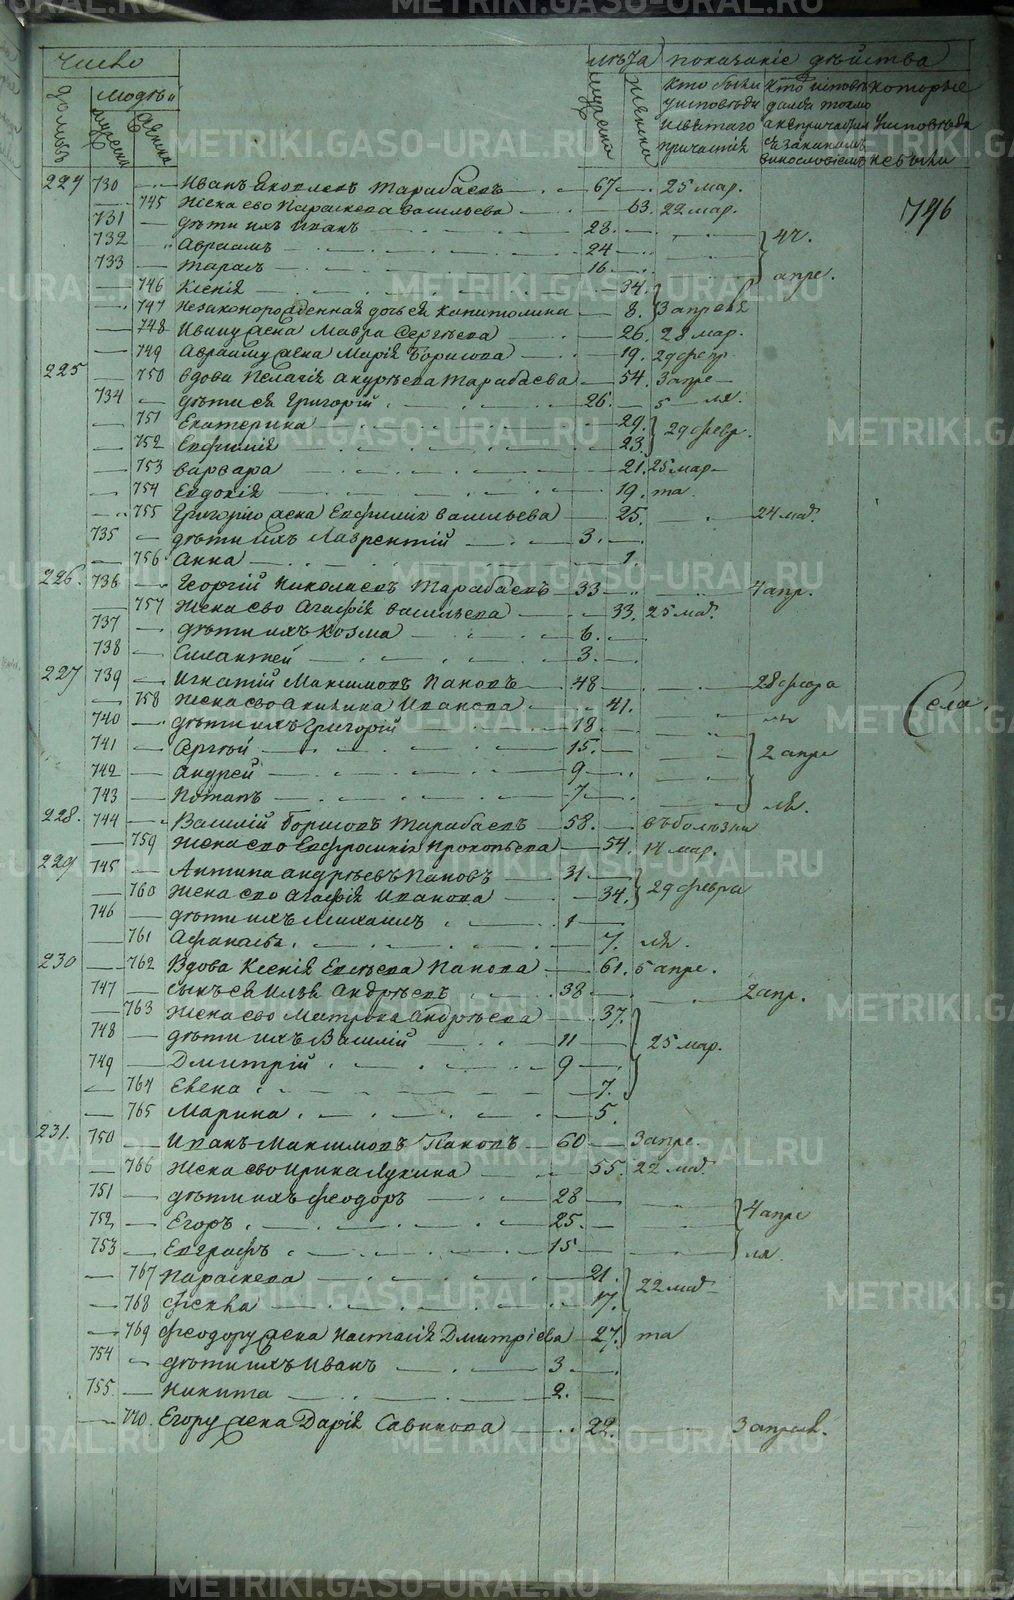 Число
домовъ
людей
мужеска
женска
лѣта
мужеска
женска
показаніе дѣйства
Кто были у исповѣди и святаго причастія
Кто исповѣдался токмо а не причастился и за какимъ винословіемъ
которые у исповѣди не были
224 730 — Иванъ Яковлевъ Тарабаевъ — 67 — 25 мар.
— 745 жена его Параскева Васильева — 63. 22 мар.
746
731 — дѣти ихъ Иванъ — 28. — 4 ч.
732 — Авраамъ — 24 —
733 — Тарасъ — 16 — апре.
— 746 Ксенія — 34.
— 747 Незаконорожденная дочь ея Капитолина — 8. 3 апреля
— 748 Ивану жена Мавра Сергѣева — 26. 28 мар.
— 749 Аврааму жена Марія Борисова — 19. 29 февр
225 — 750 вдова Пелагія Андрѣева Тарабаева — 54. 3 апре
734 — дѣти ея Григорій — 26. — 5 — ля.
— 751 Екатерина — 29.
— 752 Евфимія — 23. 29 февр.
— 753 варвара — 21. 25 мар
— 754 Евдокія — 19. та
— 755 Григорію жена Евфимія васильева — 25. — 24 мар.
735 — дѣти ихъ Лаврентій — 3. —
— 756 Анна — 1.
226. 736 — Георгій Николаевъ Тарабаевъ — 33 — 4 апр.
— 757 жена его Агафія васильева — 33. 25 мар.
737 — дѣти ихъ Козма — 6. —
738 — Силантей — 3. —
227 739 — Игнатій Максимовъ Пановъ — 48 — 28 февра
— 758 жена его Акилина Иванова — 41. — ля
Села.
740 — дѣти ихъ Григорій — 18 —
741 — Сергѣй — 15. — 2 апре
742 — Андрей — 9 —
743 — Потапъ — 7 — ля.
228. 744 — Василій Борисовъ Тарабаевъ — 58. — въ болѣзни
— 759 жена его Евфросинія Прокопьева — 54. 14 мар.
229 745 — Антипа Андрѣевъ Пановъ — 31 —
— 760 жена его Агафія Иванова — 34. 29 февра
746 — дѣти ихъ Михаилъ — 1 —
— 761 Афанасья. — 7. ля.
230 — 762 Вдова Ксенія Евсѣева Панова — 61. 5 апре.
747 — сынъ ея Илья Андрѣевъ — 38 — 2 апр.
— 763 жена его Матрона Андрѣева — 37.
748 — дѣти ихъ Василій — 11 — 25 мар.
749 — Дмитрій — 9 —
— 764 Елена — 7.
— 765 Марина — 5.
231. 750 — Иванъ Максимовъ Пановъ — 60 — 3 апре.
— 766 жена его Ирина Лукина — 55. 22 мар.
751 — дѣти ихъ Феодоръ — 28 —
752 — Егоръ. — 25. — 4 апре
753 — Евграфъ — 15 — ля
— 767 Параскева — 21. 22 мар
— 768 Фекла — 17.
— 769 Феодору жена Настасія Дмитріева — 27. та
754 — дѣти ихъ Иванъ — 3 —
755. — Никита — 2. —
— 770. Егору жена Дарія Савинова — 22. — 3 апреля.